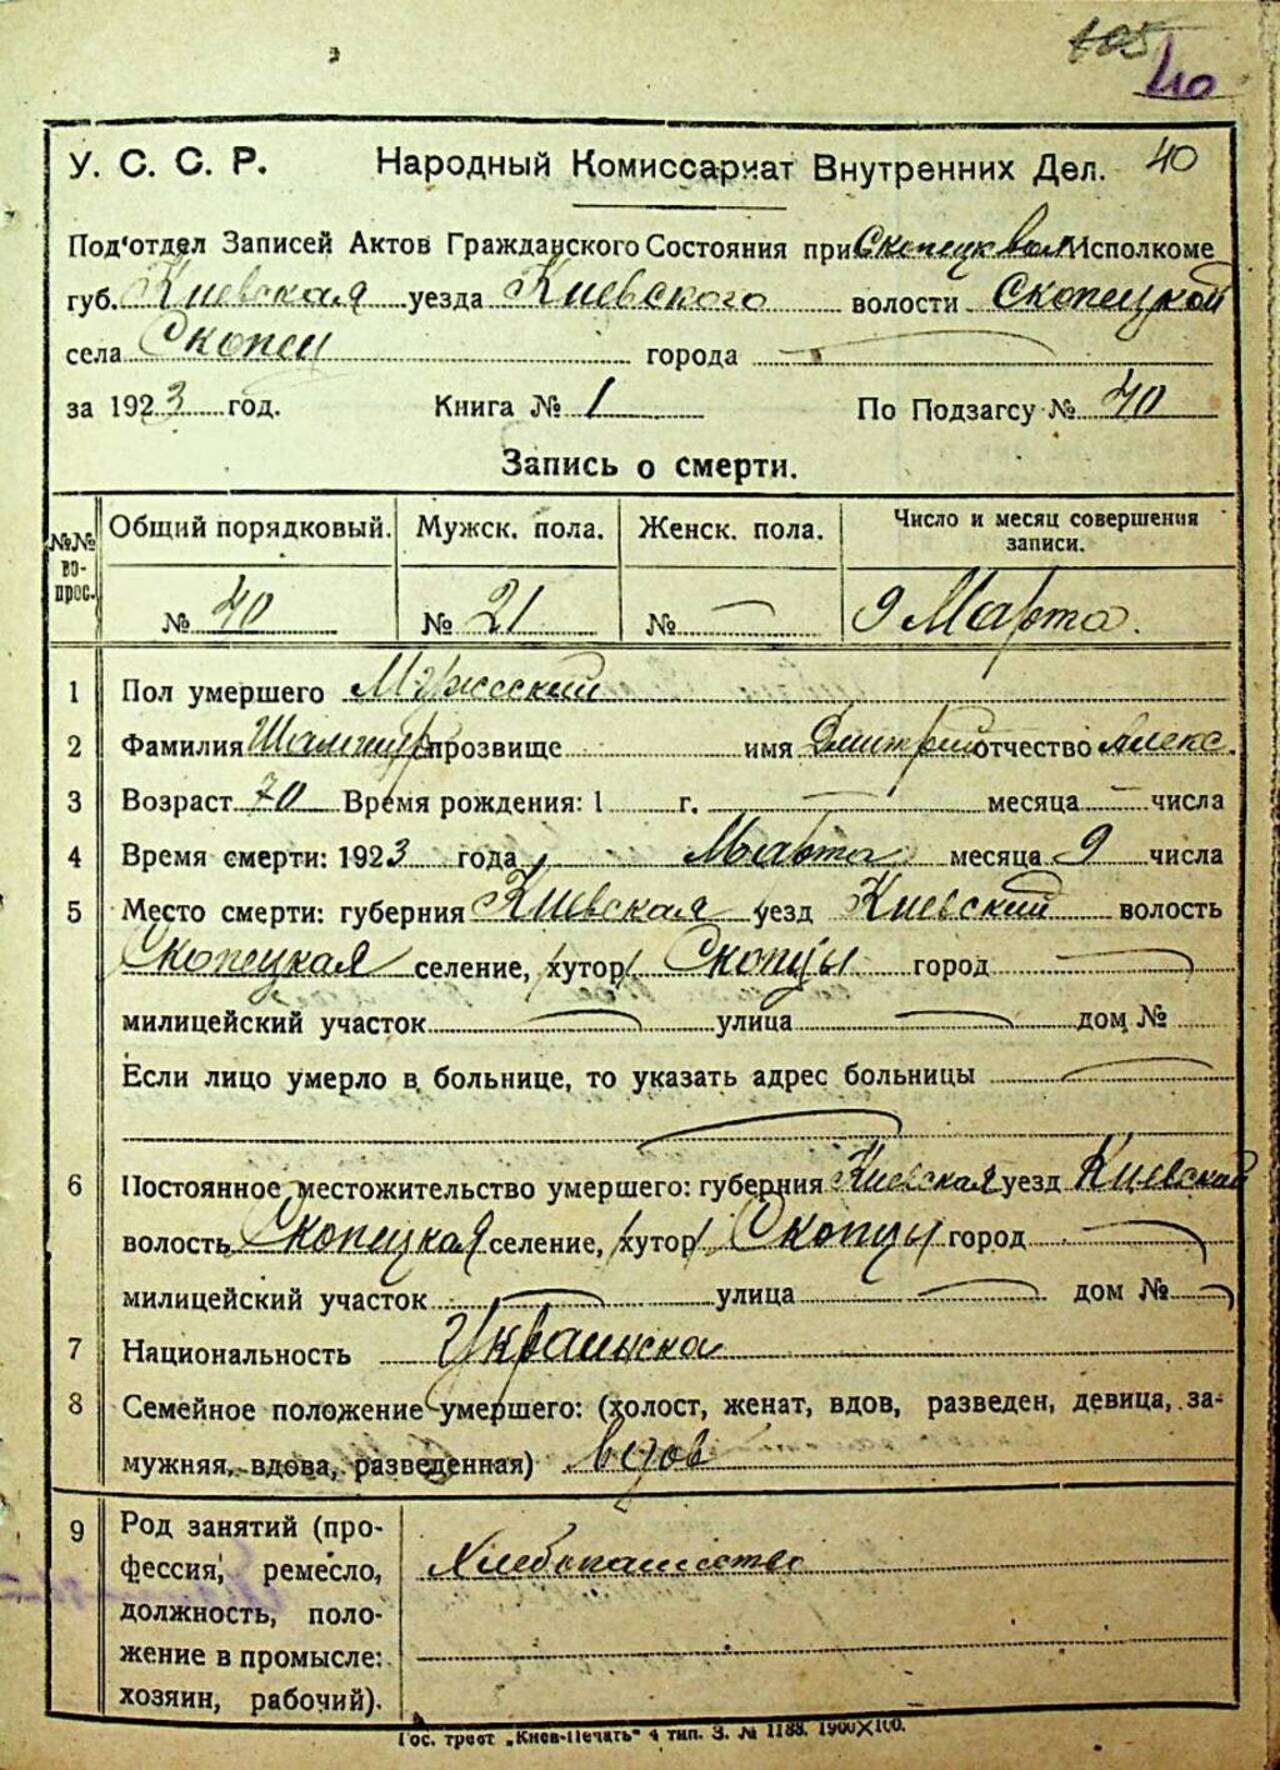 105
40
У. С. С. Р. Народный Комиссариат Внутренних Дел. 40
Под'отдел Записей Актов Гражданского Состояния при Скопецк вол Исполкоме
губ. Киевская уезда Киевского волости Скопецкой
села Скопец города
за 1923 год. Книга № 1 По Подзагсу № 40
Запись о смерти.
№№ вопрос. Общий порядковый. Мужск. пола. Женск. пола. Число и месяц совершения записи.
№ 40 № 21 № — 9 Марта.
1 Пол умершего Мужеский
2 Фамилия прозвище имя Дмитрий отчество Алекс.
3 Возраст 70 Время рождения: 1 г. — месяца — числа
4 Время смерти: 1923 года Марта месяца 9 числа
5 Место смерти: губерния Киевская уезд Киевский волость
Скопецкая селение, /хутор/ Скопцы город
милицейский участок улица дом №
Если лицо умерло в больнице, то указать адрес больницы
6 Постоянное местожительство умершего: губерния Киевская уезд Киевский
волость Скопецкая селение, /хутор/ Скопцы город
милицейский участок улица дом №
7 Национальность Украинска
8 Семейное положение умершего: (холост, женат, вдов, разведен, девица, за-
мужняя, вдова, разведенная) вдов
9 Род занятий (про-
фессия, ремесло, Хлебопашество
должность, поло-
жение в промысле:
хозяин, рабочий).
Гос. трест „Киев-Печать" 4 тип. З. № 1188. 1900×100.